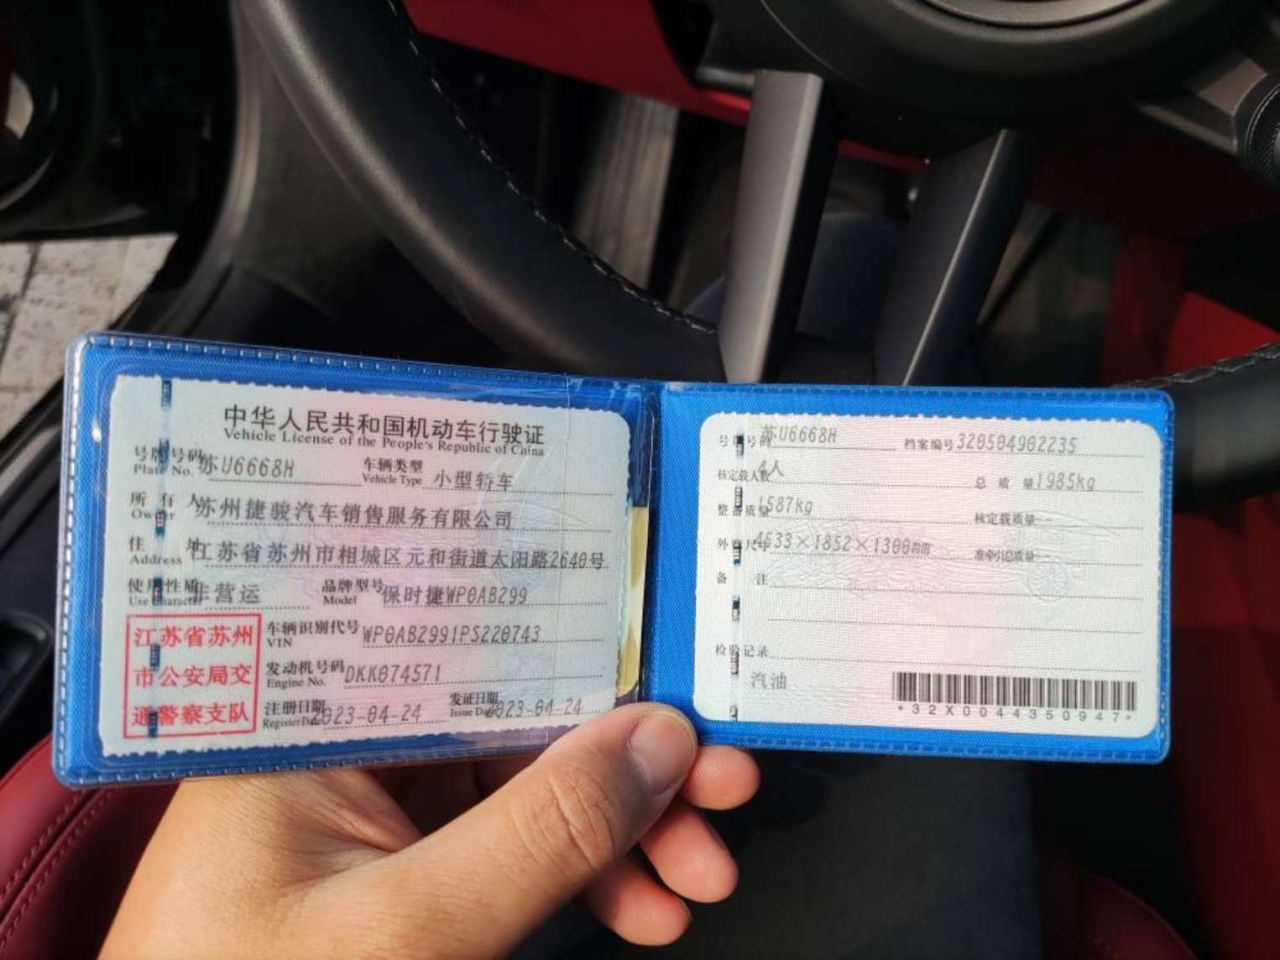 中华人民共和国机动车行驶证
Vehicle License of the People's Republic of China
号牌号码 苏U6668H 车辆类型 小型轿车
Plate No. Vehicle Type
所有人 苏州捷骏汽车销售服务有限公司
Owner
住址 江苏省苏州市相城区元和街道太阳路2640号
Address
使用性质 非营运 品牌型号 保时捷WP0AB299
Use Character Model
江苏省苏州
市公安局交
通警察支队
车辆识别代号 WP0AB2991PS220743
VIN
发动机号码 DKK074571
Engine No.
注册日期 2023-04-24 发证日期 2023-04-24
Register Date Issue Date
号牌号码 苏U6668H 档案编号 320504902235
核定载人数 4人 总质量 1985kg
整备质量 1587kg 核定载质量 --
外廓尺寸 4533×1852×1300mm 准牵引总质量 --
备注
检验记录
汽油
*32X0044350947*